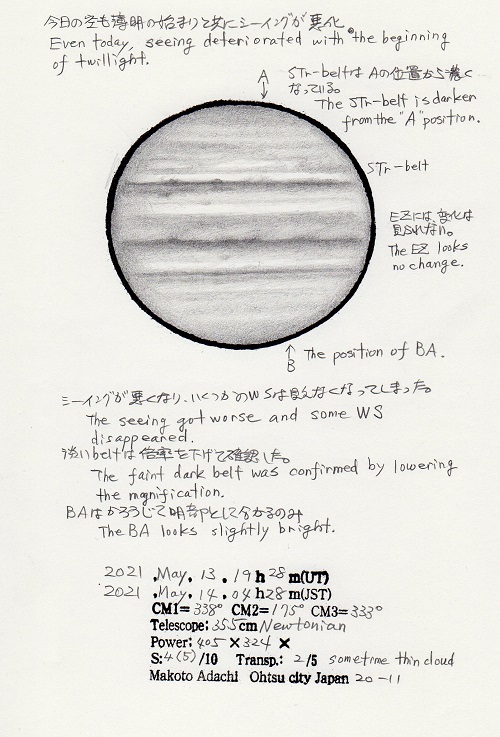 今日の空も薄明の始まりと共にシーイングが悪化
Even today, seeing deteriorated with the beginning
of twillight.
A
STr-beltはAの位置から濃く
なっている。
The STr-belt is darker
from the "A" position.
STr-belt
EZには、変化は
見られない。
The EZ looks
no change.
B
The position of BA.
シーイングが悪くなり、いくつかのWSは見えなくなってしまった。
The seeing got worse and some WS
disappeared.
淡いbeltは倍率を下げて確認した。
The faint dark belt was confirmed by lowering
the magnification.
BAはかろうじて明部として分かるのみ
The BA looks slightly bright.
2021 .May. 13. 19 h 28 m(UT)
2021 .May. 14. 04 h 28 m(JST)
CM1= 338° CM2= 175° CM3= 333°
Telescope: 355cm Newtonian
Power: 405 × 324 ×
S: 4(5)/10 Transp.: 2/5 sometime thin cloud
Makoto Adachi Ohtsu city Japan 20-11